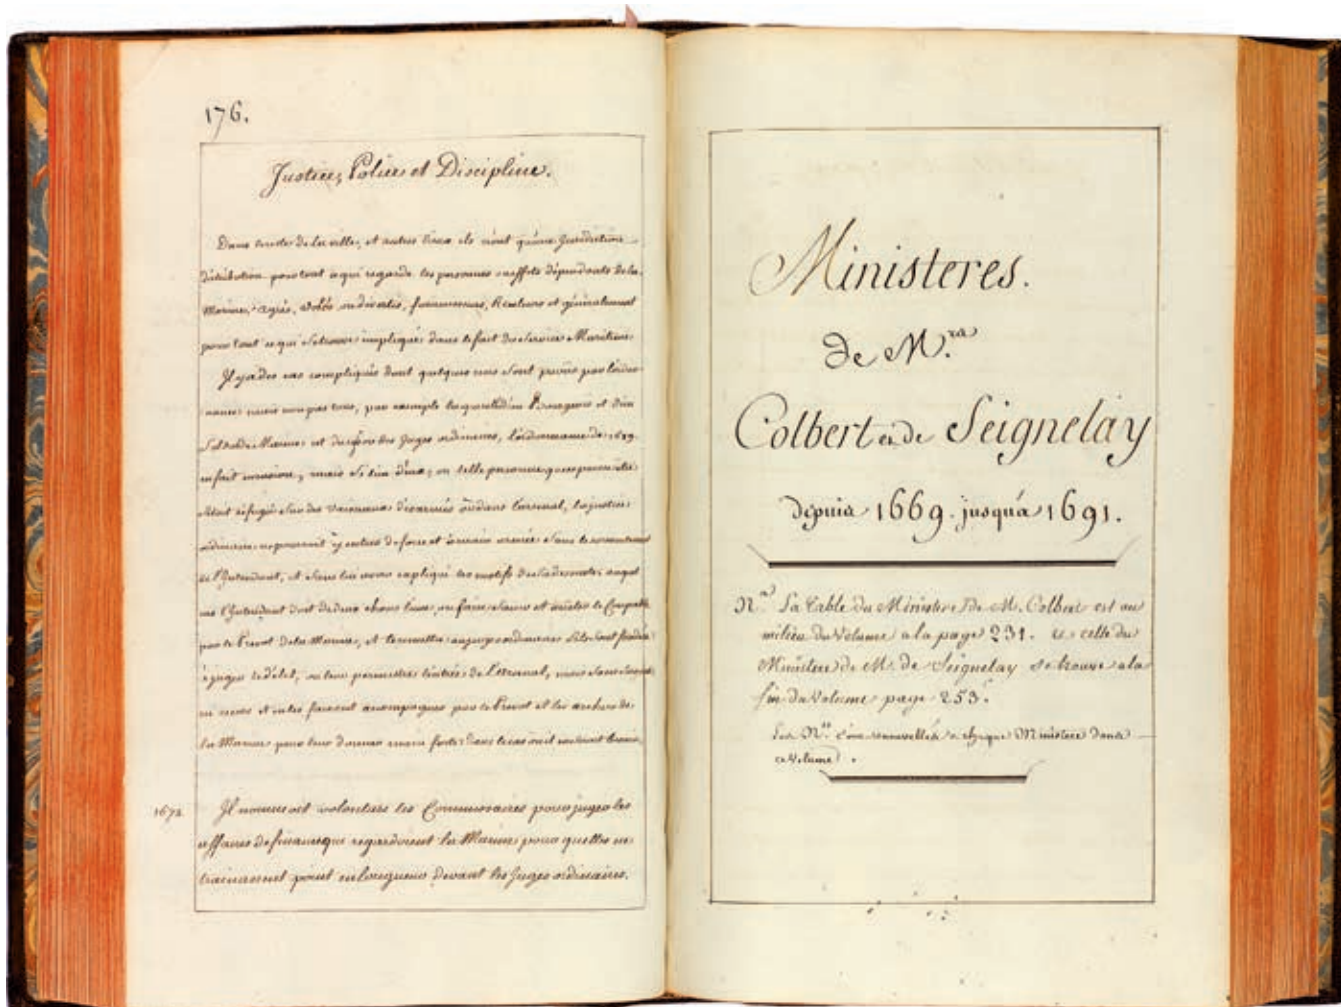 176.
Justice, Police et Discipline.
Dans le reste de la ville, et autres lieux ils n'ont qu'une Jurisdiction
d'attribution pour tout ce qui regarde les personnes ou effets dépendants de la
Marine, Agrès, volés ou divertis, fournisseurs, Receleurs et généralement
pour tout ce qui se trouve impliqué dans le fait du Service Maritime
Il y a des cas compliqués dont quelques uns sont prévus par l'ordon-
nance mais non pas tous, par exemple la querelle d'un Bourgeois et d'un
Soldat de Marine est du des Juges ordinaires, l'ordonnance de 1689.
en fait mention, mais si l'un d'eux, ou telle personne que ce puisse être
s'étoit réfugié dans des Vaisseaux désarmés ou dans l'arsenal, la justice
ordinaire ne pourroit y entrer de force et à main armée sans le consentement
de l'Intendant, et sans lui avoir expliqué les motifs de sa demande auquel
cas l'Intendant doit de deux choses l'une, ou faire saisir et arrêter le Coupable
par le Prevot de la Marine, et le remettre aux juges ordinaires s'ils sont fondés
à juger le délit, ou leur permettre l'entrée de l'arsenal, mais sans
et en les faisant accompagner par le Prevot et les archers de
la Marine pour leur donner main forte dans le cas où il en seroit besoin.
1672 Il nommoit volontiers des Commissaires pour juger les
affaires de finances que regardoient la Marine pour qu'elles ne
trainassent point en longueur devant les Juges ordinaires.
Ministeres.
de M.rs
Colbert et de Seignelay
depuis 1669. jusqu'á 1691.
N.a La Table du Ministere de M. Colbert est au
milieu du Volume a la page 231. et celle du
Ministere de M. de Seignelay se trouve a la
fin du Volume page 253.
Les N.os sont renouvellés a chaque Ministere dans
ce Volume.